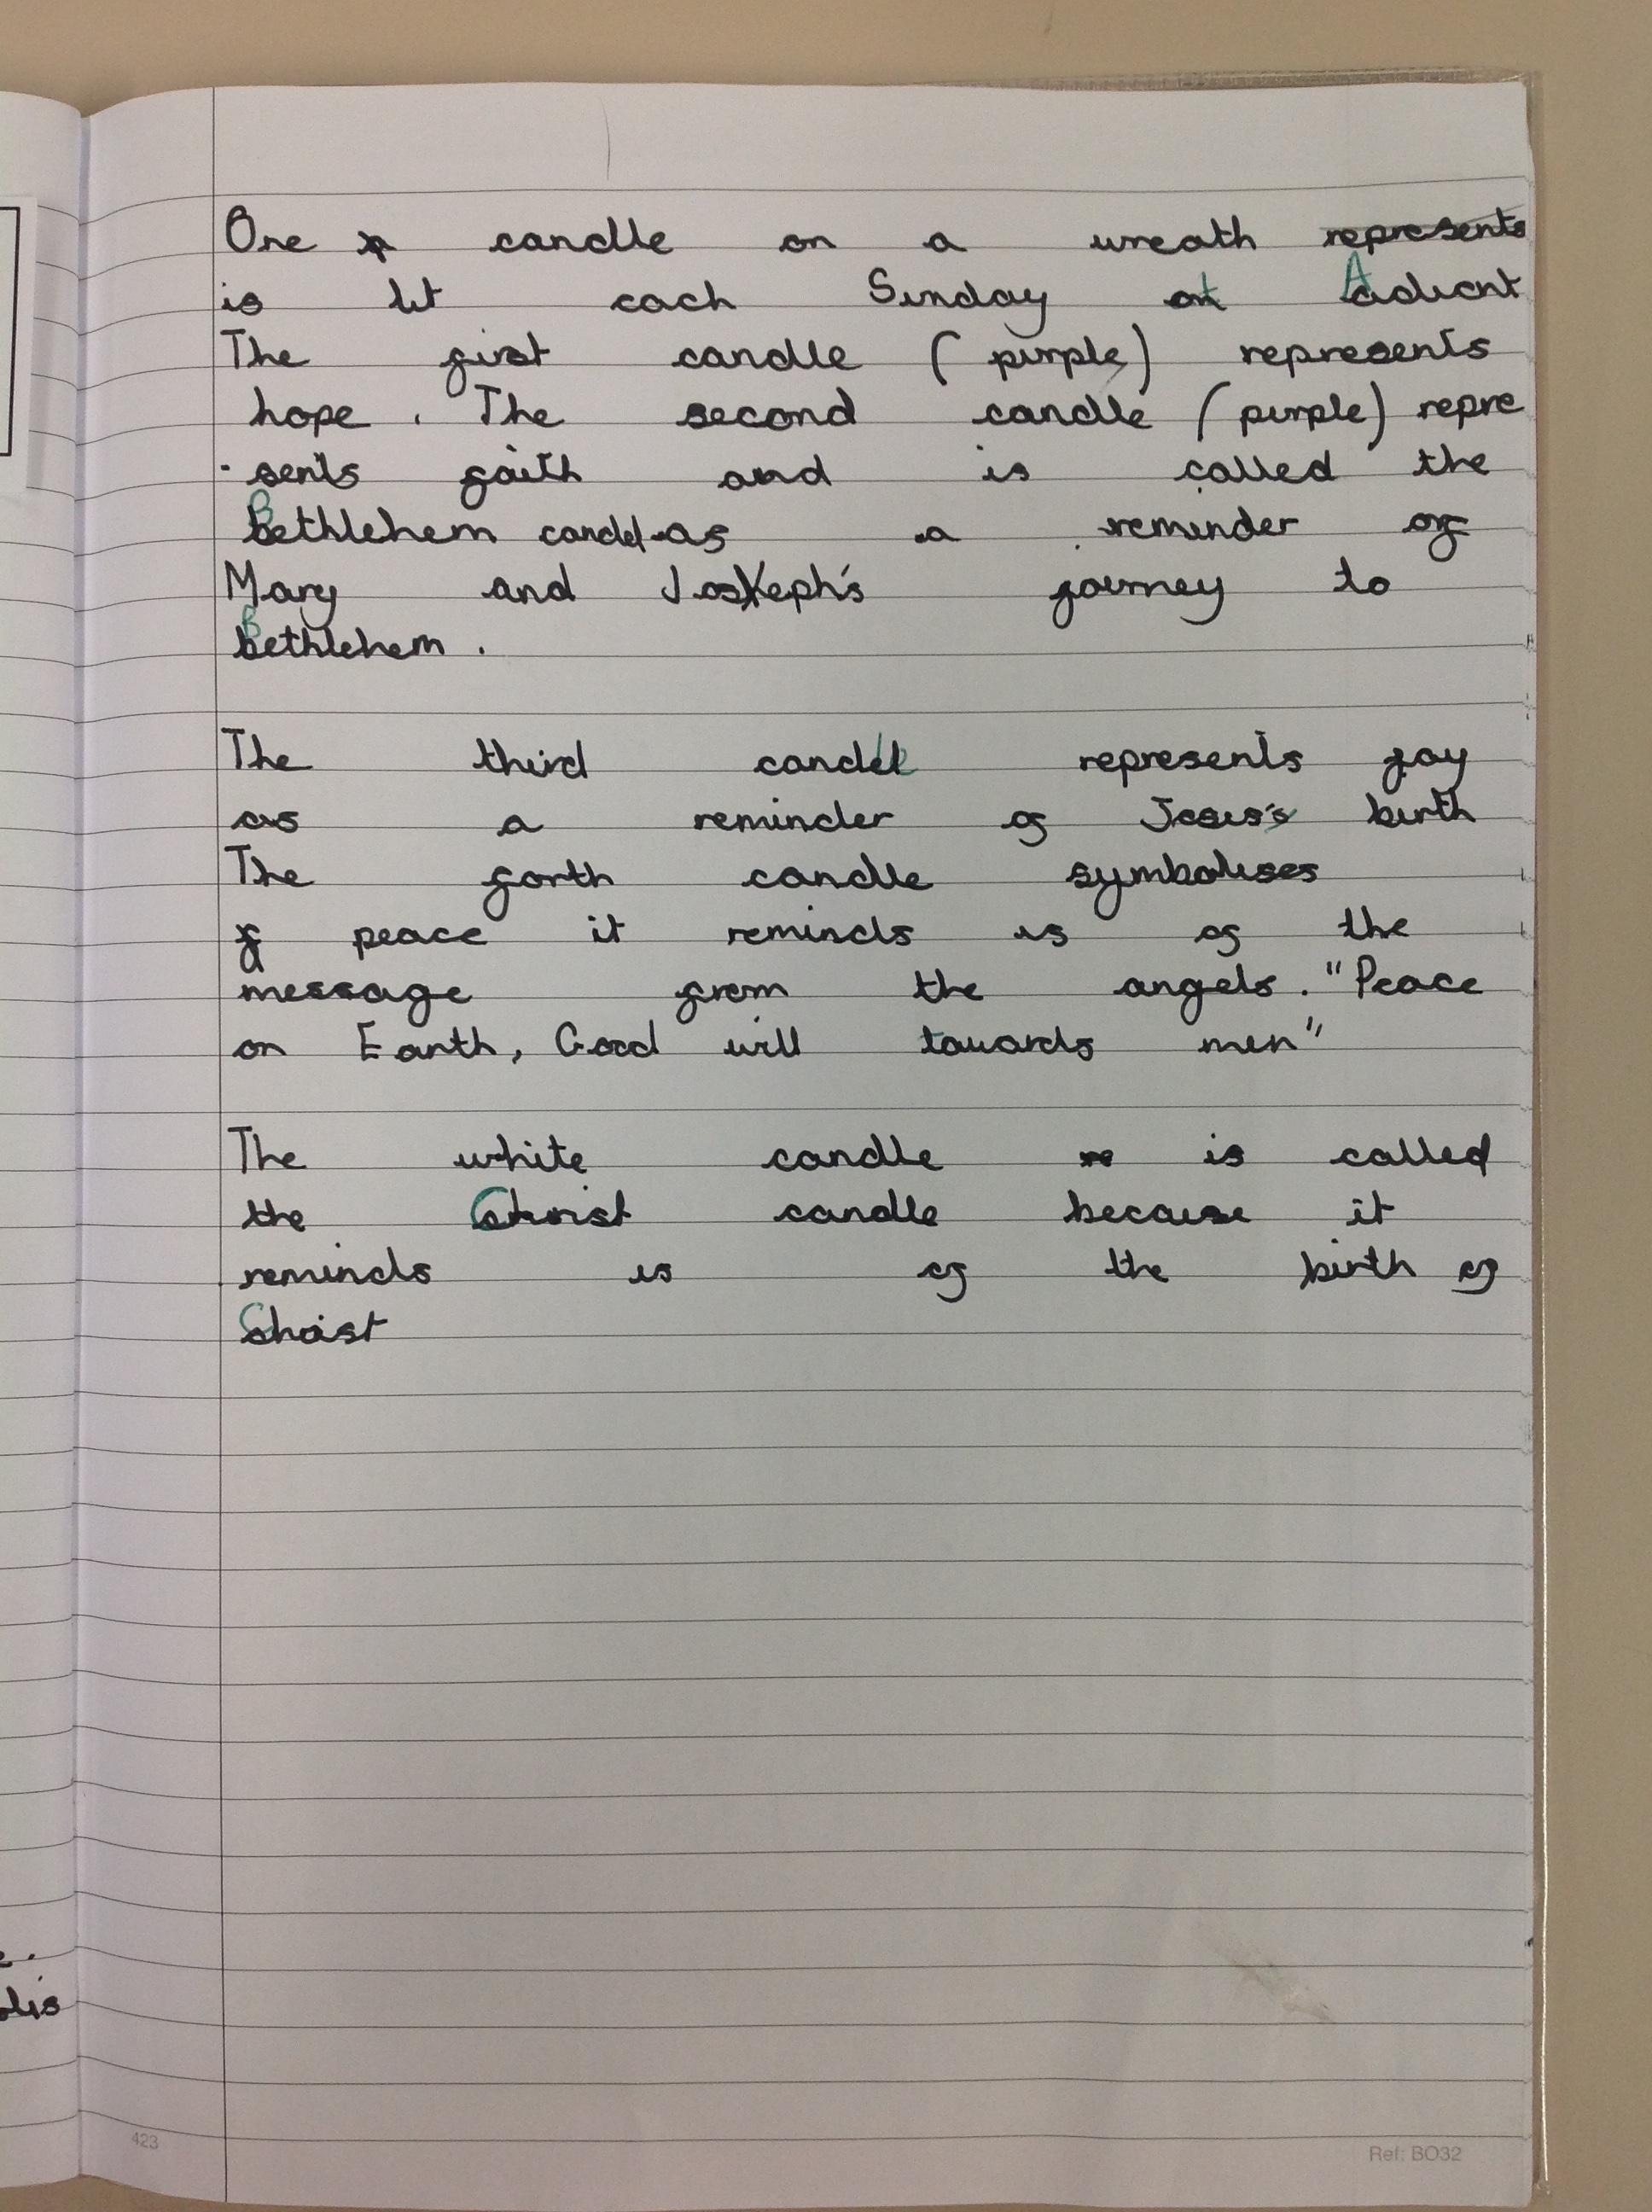 One candle on a wreath represents
is lit each Sunday at Advent
The first candle (purple) represents
hope. The second candle (purple) repre
-sents faith and is called the
Bethlehem candel as a reminder of
Mary and Joseph's journey to
Bethlehem.
The third candle represents joy
as a reminder of Jesus's birth
The forth candle symbolises
peace it reminds us of the
message from the angels. "Peace
on Earth, Good will towards men"
The white candle is called
the Christ candle because it
reminds us of the birth of
Christ
olis
423
Ref: BO32